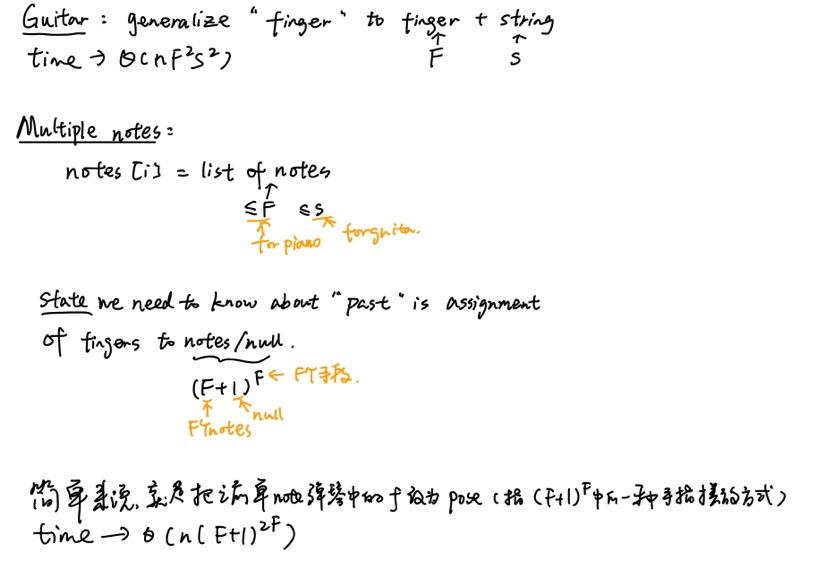 Guitar : generalize "finger" to finger + string
F S
time → Θ(nF²S²)
Multiple notes:
notes [i] = list of notes
≤F ≤S
for piano for guita.
State we need to know about "past" is assignment
of fingers to notes/null.
(F+1)^F ← F个手指.
F个notes null
简单来说,就是把之前单note弹琴中的f设为pose(指(F+1)^F中的一种手指摆放方式)
time → Θ(n(F+1)^2F)